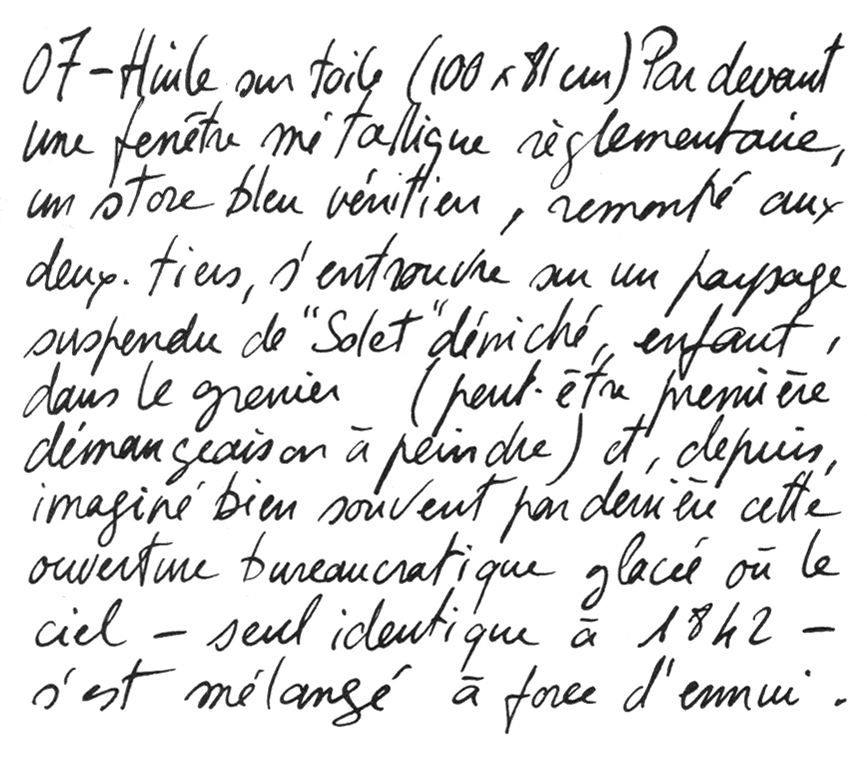 07 - Huile sur toile (100 x 81 cm) Par devant
une fenêtre métallique règlementaire,
un store bleu vénitien, remonté aux
deux-tiers, s'entrouvre sur un paysage
suspendu de "Solet" déniché, enfant,
dans le grenier (peut-être première
démangeaison à peindre) et, depuis,
imaginé bien souvent par derrière cette
ouverture bureaucratique glacée où le
ciel - seul identique à 1842 -
s'est mélangé à force d'ennui.